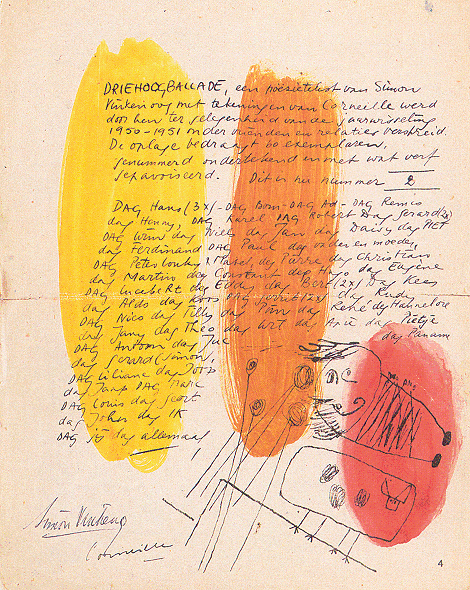 DRIEHOOGBALLADE, een poëzietekst van Simon
Vinkenoog met tekeningen van Corneille werd
door hen ter gelegenheid van de jaarwisseling
1950-1951 onder vrienden en relaties verspreid.
De oplage bedraagt 60 exemplaren,
genummerd ondertekend en met wat verf
gefavoriseerd. Dit is het nummer 2
DAG Hans (3x) - DAG Bom - DAG Ad - DAG Remco
dag Henny, DAG Karel DAG Robert Dag Gerard (2x)
DAG Wim dag Niel dag Jan dag Daisy dag PIET
dag Ferdinand DAG Paul dag vader en moeder,
DAG Peter Louky, Mabel, dag Pierre dag Christiaan
dag Martin dag Constant dag Hugo dag Eugène
DAG Lucebert dag Eddy dag Bert (2x) dag Kees
dag Aldo dag Koos DAG (2x) dag Rudy
DAG Nico dag Tilly dag Pam dag René dag Hannelore
dag Jany dag Theo dag Wit dag Arie dag Pietje
DAG Antoon dag Juc dag Panam
dag Gerard (Simon,
DAG Liliane dag Joop
dag Jaap DAG Marc
DAG Louis dag Geert
dag John dag IK
DAG jij dag allemaal
Simon Vinkenoog
Corneille
4